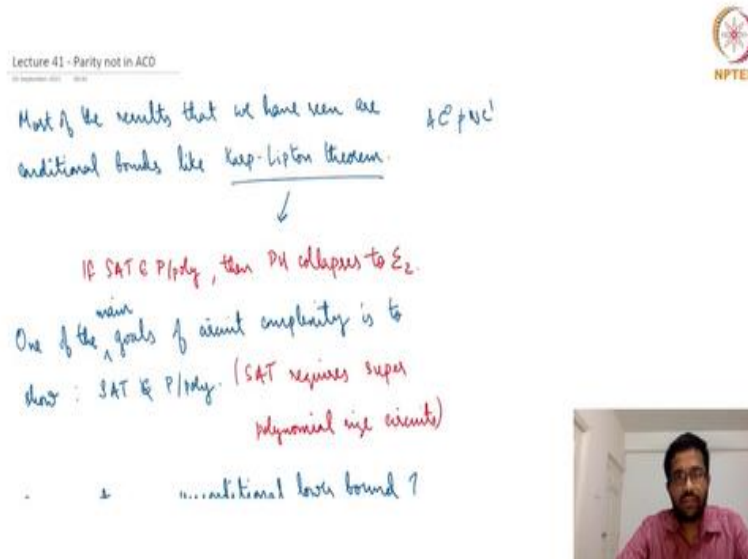 NPTEL
Lecture 41 - Parity not in AC0
Most of the results that we have seen are
AC⁰ NC¹
conditional bounds like Karp-Lipton theorem.
↓
If SAT ∈ P/poly, then PH collapses to Σ₂.
main
One of the ^ goals of circuit complexity is to
show : SAT ∉ P/poly. (SAT requires super
polynomial size circuits)
lower bound ?